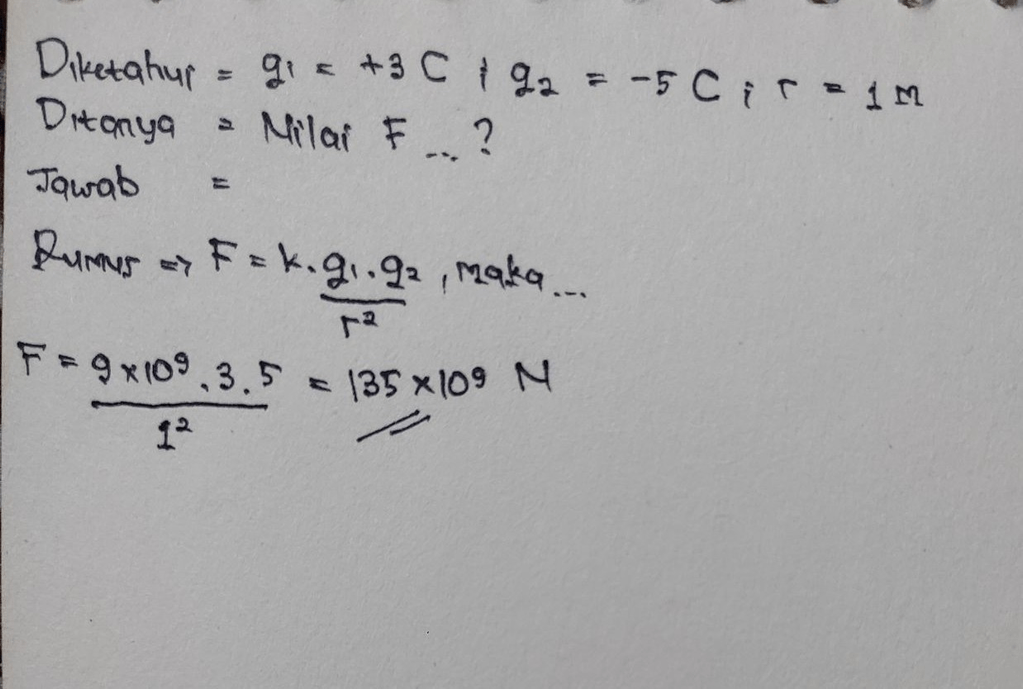 Diketahui = q1 = +3 C ; q2 = -5 C ; r = 1 M
Ditanya = Nilai F ... ?
Jawab =
Rumus => F = k . q1 . q2 , maka ...
r²
F = 9 x 10⁹ . 3 . 5 = 135 x 10⁹ N
1²